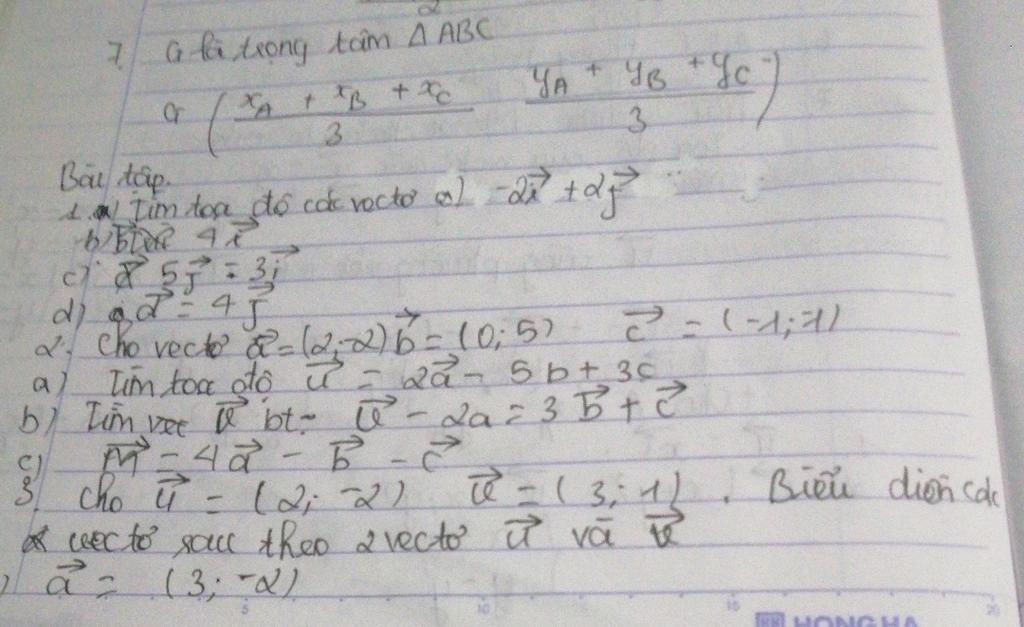 2
7. G là trọng tâm △ABC
G ( (x_A + x_B + x_C)/3 (y_A + y_B + y_C)/3 )
Bài tập.
1. a) Tìm toạ độ các vectơ a) -2i⃗ + 2j⃗
b) 4i⃗
c) 5j⃗ = 3i⃗
d) a⃗ = 4j⃗
2. Cho vectơ a⃗ = (2;-2) b⃗ = (0;5) c⃗ = (-1;-1)
a) Tìm toạ độ u⃗ = 2a⃗ - 5b + 3c
b) Tìm vec v⃗ bt: v⃗ - 2a = 3b⃗ + c⃗
c) m⃗ = 4a⃗ - b⃗ - c⃗
3. Cho u⃗ = (2; -2) v⃗ = (3; -1). Biểu diễn các
vectơ sau theo 2 vectơ u⃗ và v⃗
) a⃗ = (3; -2)
5 10 15 20
HONG HA